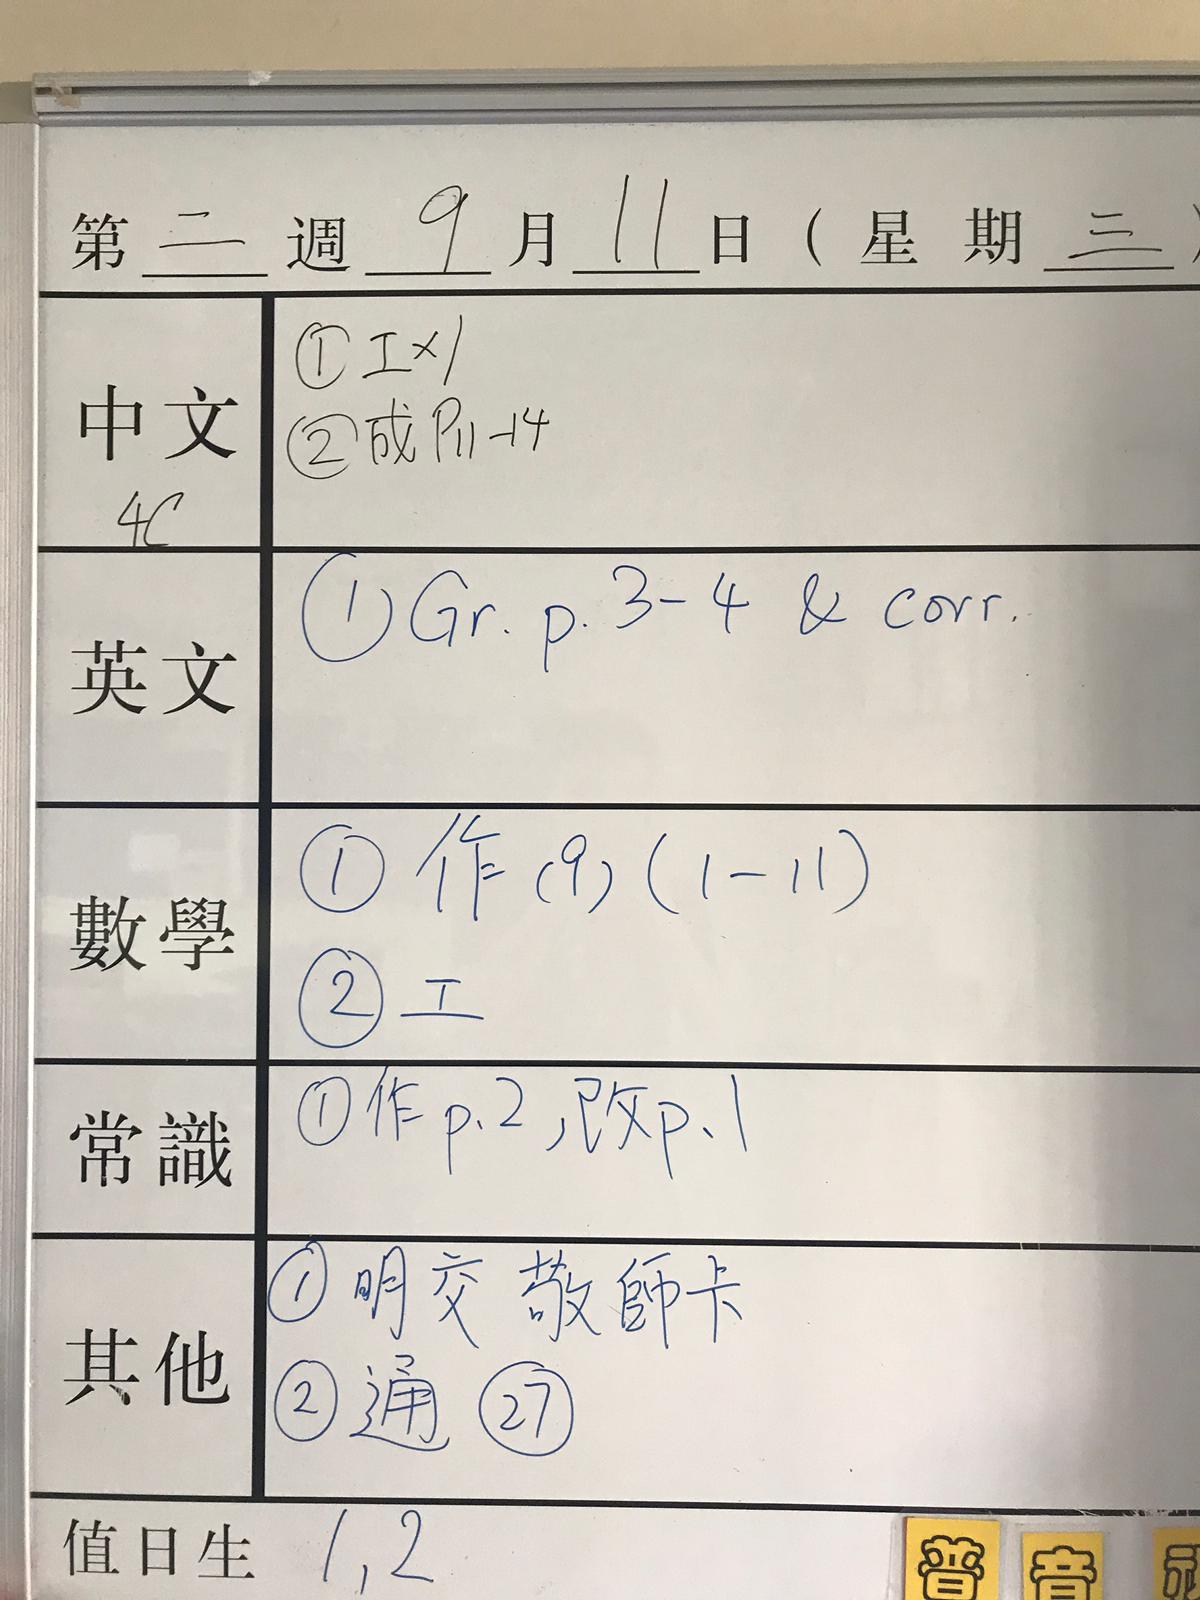 第 二 週 9 月 11 日 ( 星 期 三 )
中文
4C
① 工×1
② 成 P11-14
英文
① Gr. p. 3-4 & corr.
數學
① 作 (9) (1-11)
② 工
常識
① 作 p.2, 改 p.1
其他
① 明交 敬師卡
② 通 ㉗
值日生 1, 2
普 音